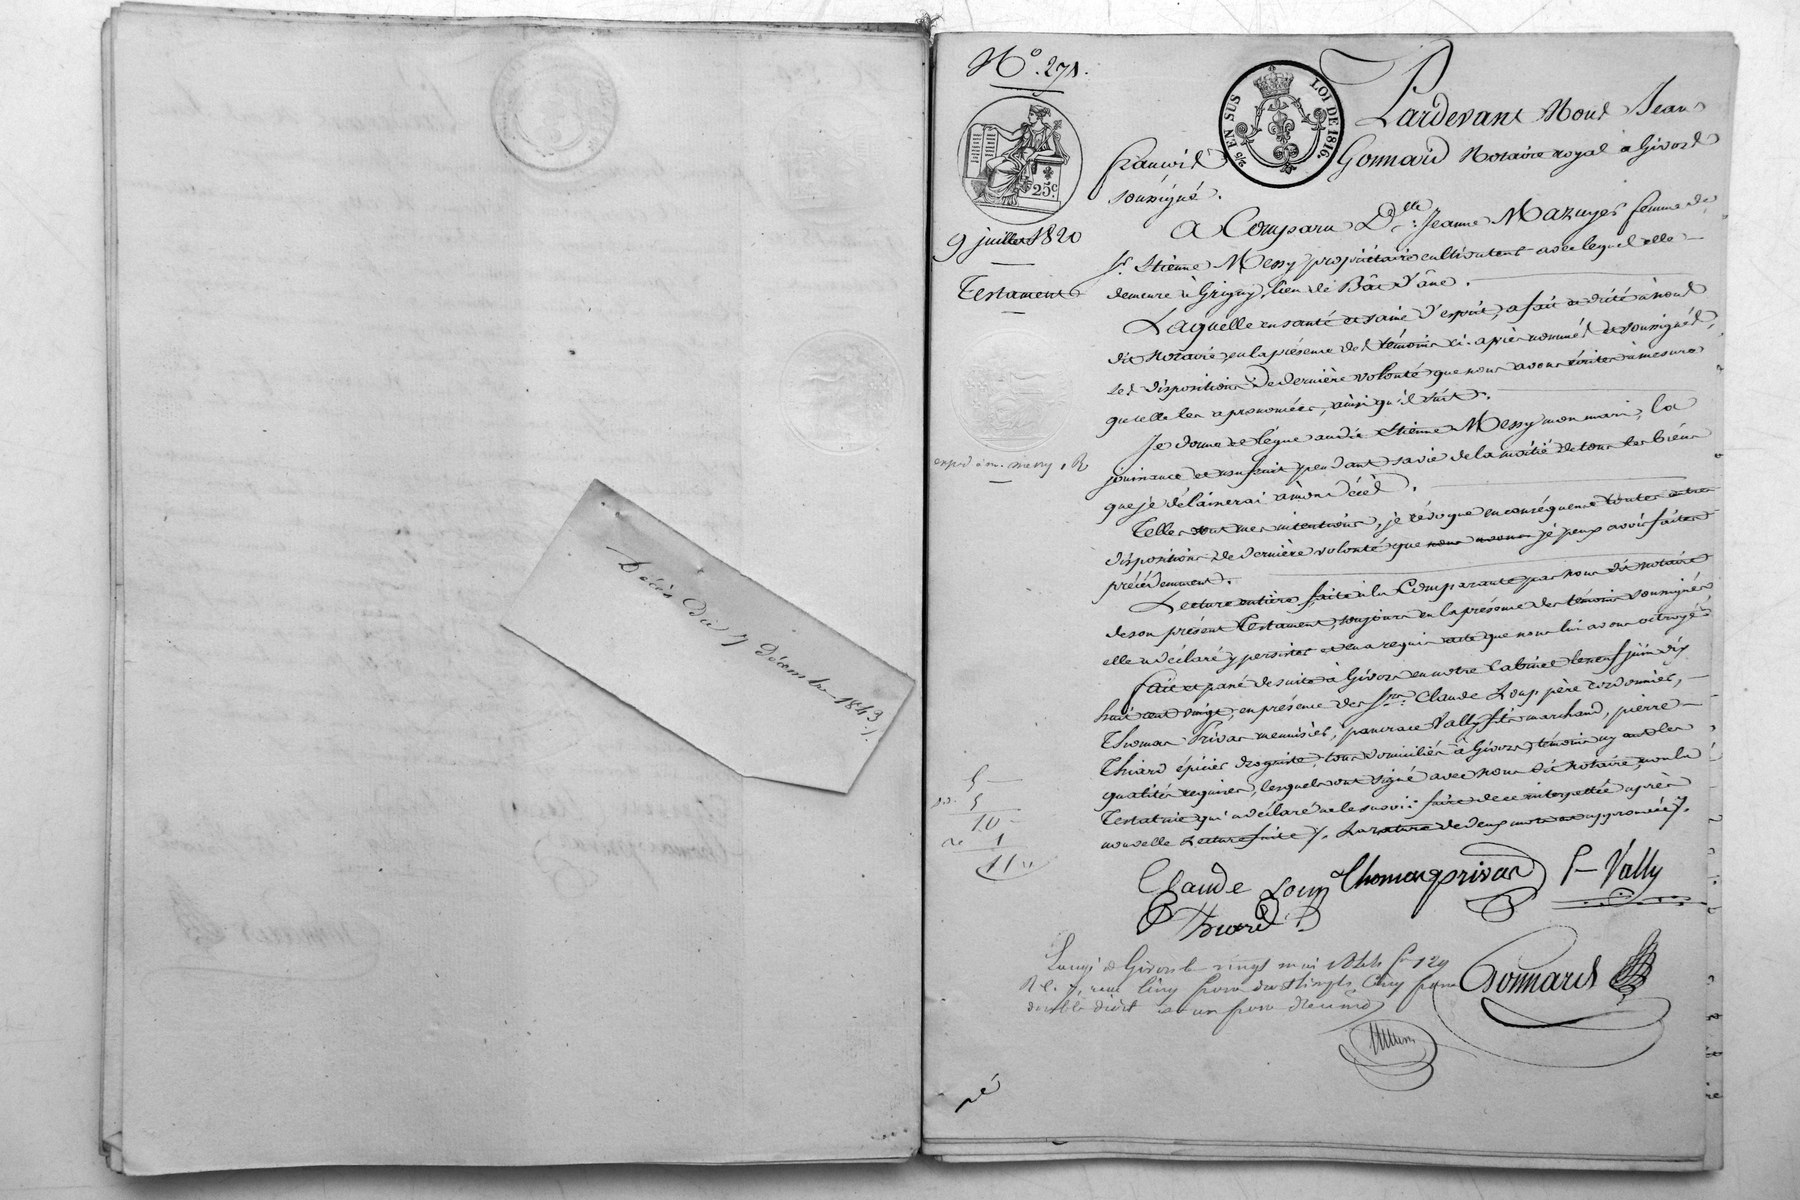 Décès du 7 Décembre 1843
N.º 271.
EN SUS
LOI DE 1816.
25.c
9 juillet 1820
Testament
Pardevant Nous Jean
francois Gonnard Notaire royal à Givors
soussigné.
A Comparu D.lle Jeanne Mazuyes femme de
s.r Etienne Messy propriétaire cultivateur avec lequel elle
demeure à Grigny, lieu de Bât d'âne.
Laquelle en santé et saine d'esprit, a fait et dicté à nous
dit Notaire, en la présence des témoins ci-après nommés et soussignés,
ses dispositions de dernière volonté que nous avons écrites à mesure
qu'elle les a prononcées, ainsi qu'il suit.
Je donne et lègue audit Etienne Messy mon mari, la
jouissance et usufruit pendant sa vie de la moitié de tous les biens
que je délaisserai à mon décès.
Telles sont mes intentions, je révoque en conséquence toutes autres
dispositions de dernière volonté que nous avons je peux avoir faites
précédemment.
Lecture entière faite à la Comparante par nous dit notaire
de son présent Testament, toujours en la présence des témoins soussignés
elle a déclaré y persister et en a requis acte que nous lui avons octroyé
fait et passé de suite à Givors en notre Cabinet le neuf juin dix
huit cent vingt, en présence des s.rs Claude Loup père cordonnier,
Thomas Privas menuisier, pancrace Vally fils marchand, pierre
Thiard épicier droguiste, tous domiciliés à Givors, témoins ayant les
qualités requises, lesquels ont signé avec nous dit notaire, non la
Testatrice qui a déclaré ne le savoir faire de ce interpellée après
nouvelle Lecture faite. La rature de deux mots est approuvée.
5
5
10
1
11
Claude Loup Thomas privas P Vally
P Thiard
Gonnard
Enregi à Givors le vingt mai 1844 f.o 129
R C. 7, reçu cinq francs
double droit et un franc